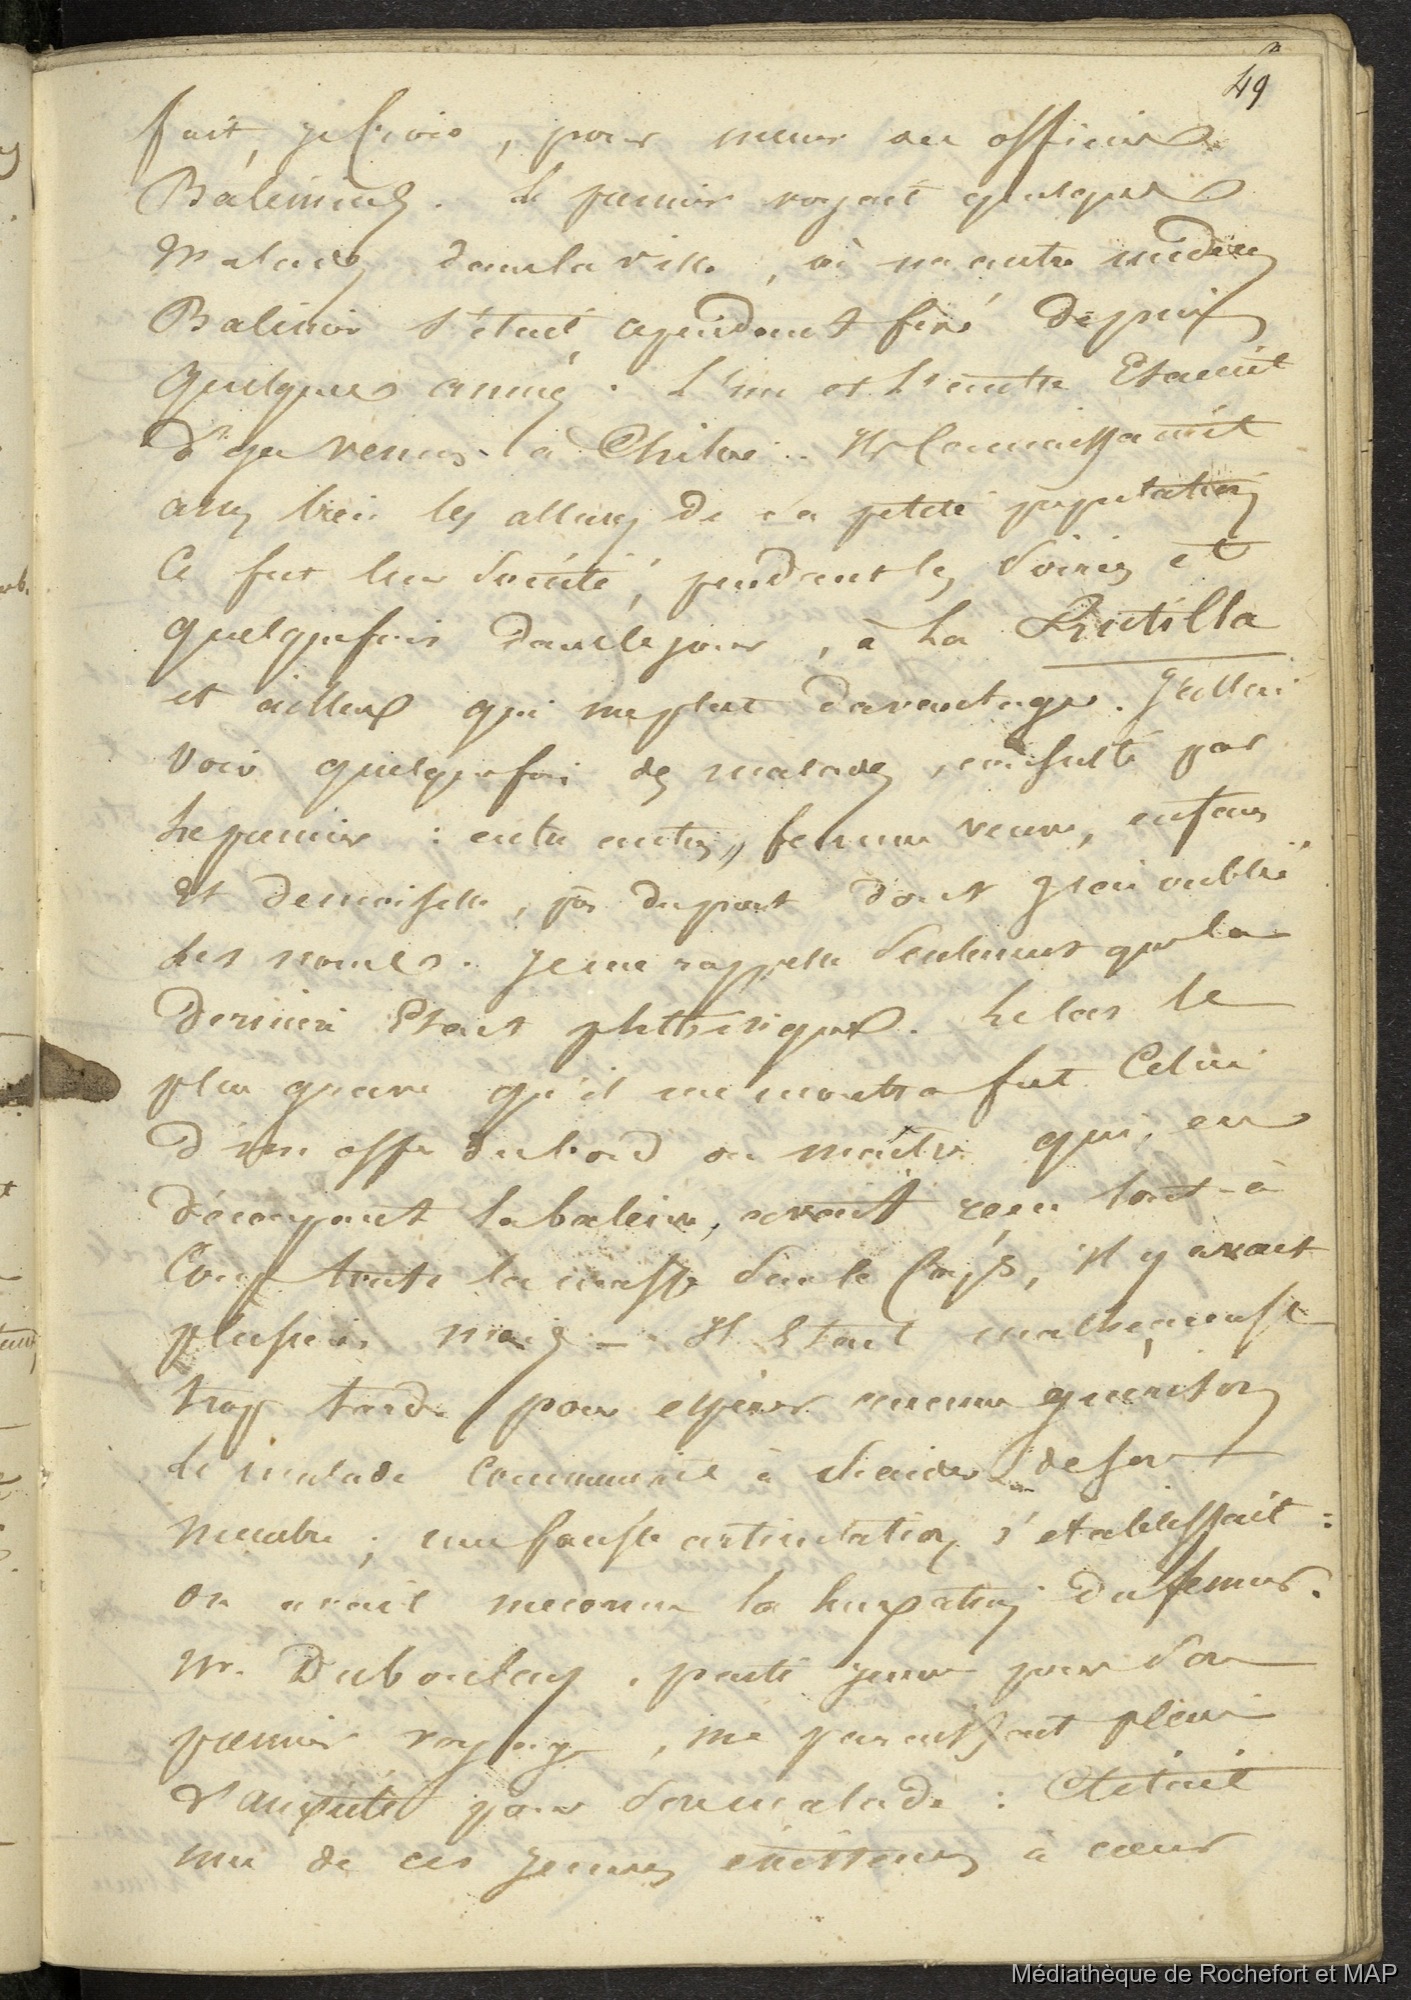 49
fait, je crois, pour mener des officiers
Baleiniers. Le premier voyait quelques
malades dans la ville, où un autre médecin
Baleinier s'était cependant fixé depuis
quelques années. L'un et l'autre Etaient
déja venus à Chiloe. Ils Connaissaient
assez bien les allures de sa petite population
Ce fut leur Société, pendant les Soirées et
quelquefois dans le jour, à La
et ailleurs qui me plut davantage. J'allai
voir quelquefois des malades, consulté par
Le premier : entre autres, femme veuve, enfans
Et demoiselle, du port dont j'ai oublié
Les noms. Je me rappelle Seulement que la
dernière Etait phthisique. Le cas le
plus grave qu'il me montra fut Celui
d'un offer du bord ou maître qui, en
dépeçant la baleine, avait reçu tout-à
Coup toute la masse Sur le Corps, il y avait
plusieurs mois – Il Etait malheureust
trop tard pour espérer aucune guérison
Le malade Commençait à s'aider de son
membre ; une fausse articulation s'etablissait :
on avait meconnu la luxation du femur.
Mr. Duboulay, parti jeune pour Son
premier voyage, me paraissait plein
d'anxiété pour Son malade : C'était
une de ces jeunes existences à cœur
Médiathèque de Rochefort et MAP